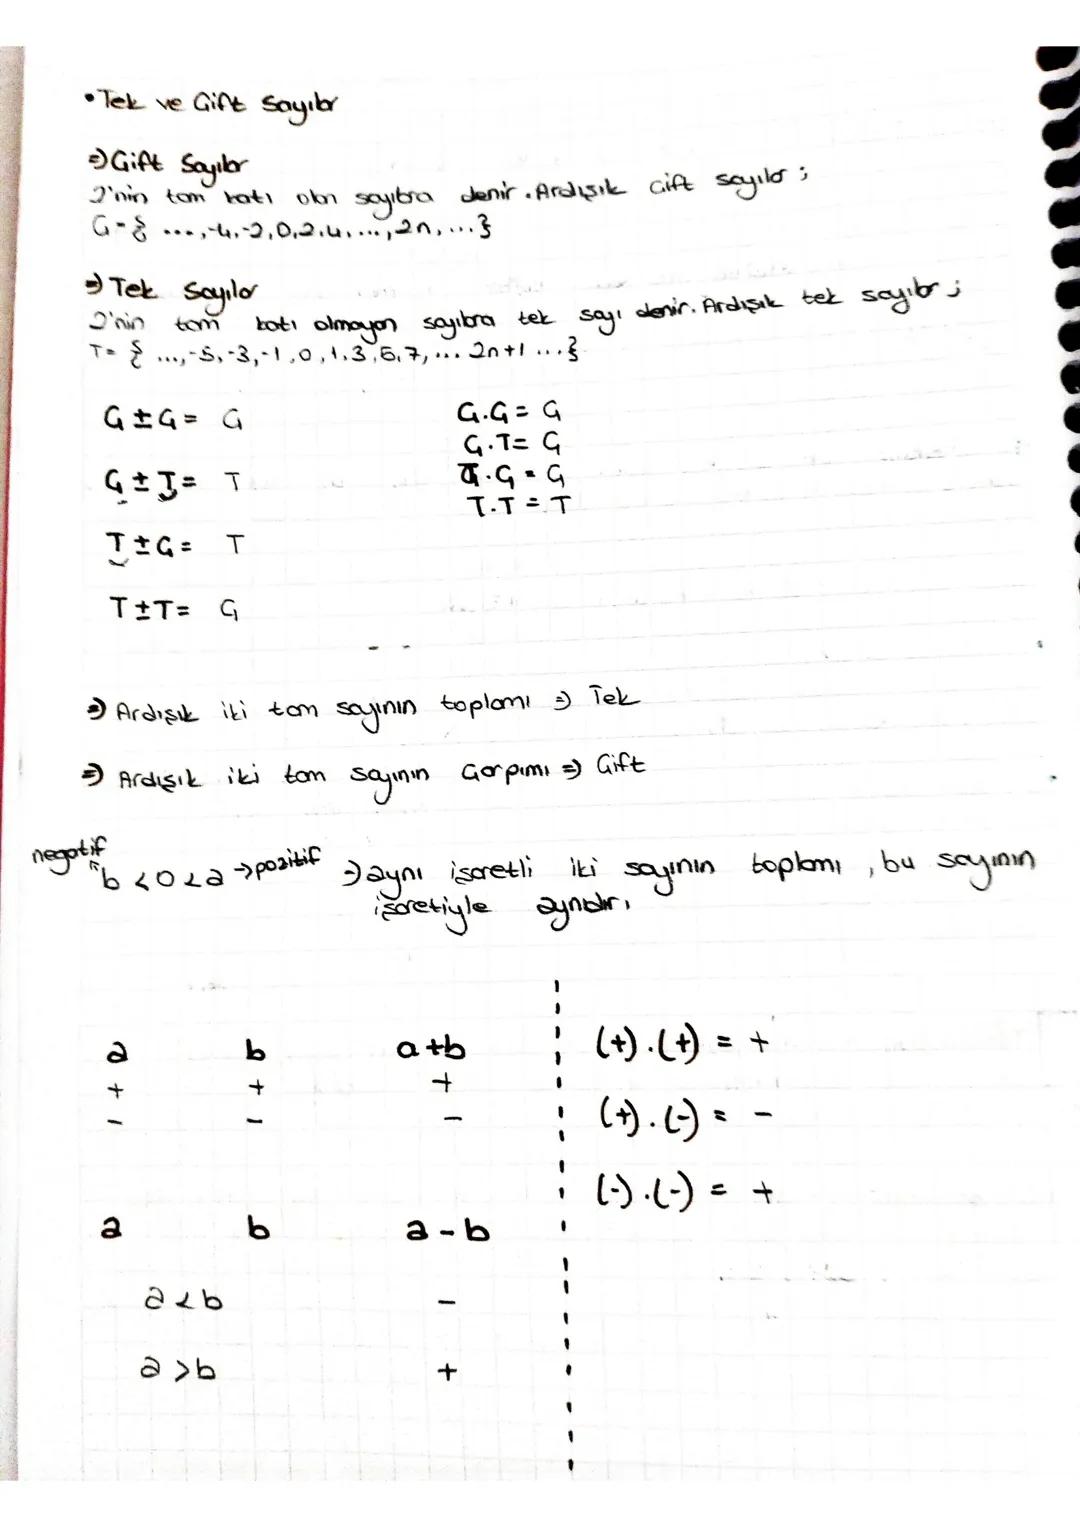 • Tek ve Çift Sayılar
⇒ Çift Sayılar
2'nin tam katı olan sayılara denir. Ardışık çift sayılar ;
Ç = { ..., -4, -2, 0, 2, 4, ..., 2n, ... }
⇒ Tek Sayılar
2'nin tam katı olmayan sayılara tek sayı denir. Ardışık tek sayılar ;
T = { ..., -5, -3, -1, 0, 1, 3, 5, 7, ... 2n+1 ... }
Ç ± Ç = Ç
Ç ± T = T
T ± Ç = T
T ± T = Ç
Ç.Ç = Ç
Ç.T = Ç
T.Ç = Ç
T.T = T
⇒ Ardışık iki tam sayının toplamı ⇒ Tek
⇒ Ardışık iki tam sayının Çarpımı ⇒ Çift
negatif
b < 0 < a → pozitif ⇒ aynı işaretli iki sayının toplamı, bu sayının
işaretiyle aynıdır.
a b a+b
+ + +
- - -
a b a - b
a < b -
a > b +
(+).(+) = +
(+).(-) = -
(-).(-) = +